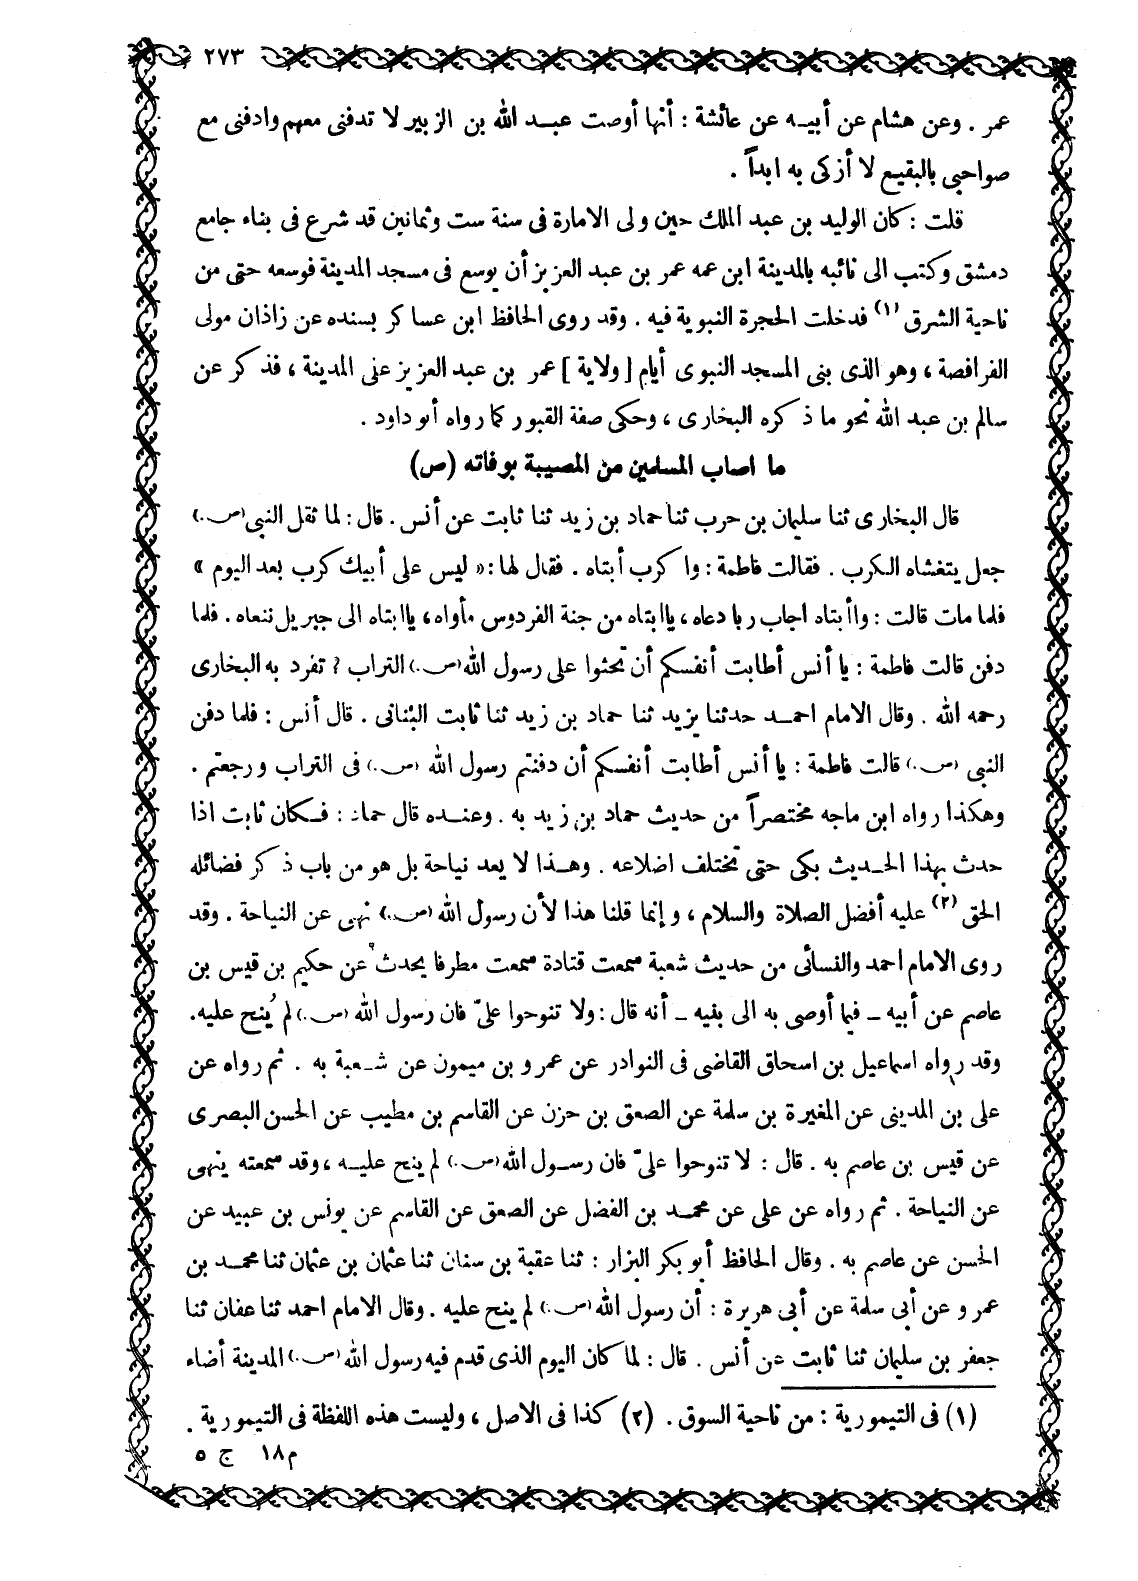 ٢٧٣
عمر . وعن هشام عن أبيه عن عائشة : أنها أوصت عبد الله بن الزبير لا تدفنى معهم وادفنى مع
صواحبى بالبقيع لا أزكى به ابداً .
قلت : كان الوليد بن عبد الملك حين ولى الامارة فى سنة ست وثمانين قد شرع فى بناء جامع
دمشق وكتب الى نائبه بالمدينة ابن عمه عمر بن عبد العزيز أن يوسع فى مسجد المدينة فوسعه حتى من
ناحية الشرق (١) فدخلت الحجرة النبوية فيه . وقد روى الحافظ ابن عساكر بسنده عن زاذان مولى
الفرافصة ، وهو الذى بنى المسجد النبوى أيام [ ولاية ] عمر بن عبد العزيز على المدينة ، فذكر عن
سالم بن عبد الله نحو ما ذكره البخارى ، وحكى صفة القبور كما رواه أبو داود .
ما اصاب المسلمين من المصيبة بوفاته (ص)
قال البخارى ثنا سليمان بن حرب ثنا حماد بن زيد ثنا ثابت عن أنس . قال : لما ثقل النبى (ص.)
جعل يتغشاه الكرب . فقالت فاطمة : وا كرب أبتاه . فقال لها : « ليس على أبيك كرب بعد اليوم »
فلما مات قالت : واأبتاه اجاب ربا دعاه ، يا ابتاه من جنة الفردوس مأواه ، يا ابتاه الى جبريل ننعاه . فلما
دفن قالت فاطمة : يا أنس أطابت أنفسكم أن تحثوا على رسول الله (ص.) التراب ? تفرد به البخارى
رحمه الله . وقال الامام احمد حدثنا يزيد ثنا حماد بن زيد ثنا ثابت البنانى . قال أنس : فلما دفن
النبى (ص.) قالت فاطمة : يا أنس أطابت أنفسكم أن دفنتم رسول الله (ص.) فى التراب ورجعتم .
وهكذا رواه ابن ماجه مختصراً من حديث حماد بن زيد به . وعنده قال حماد : فكان ثابت اذا
حدث بهذا الحديث بكى حتى تختلف اضلاعه . وهذا لا يعد نياحة بل هو من باب ذكر فضائله
الحق (٢) عليه أفضل الصلاة والسلام ، وإنما قلنا هذا لأن رسول الله (ص.) نهى عن النياحة . وقد
روى الامام احمد والنسائى من حديث شعبة سمعت قتادة سمعت مطرفا يحدث عن حكيم بن قيس بن
عاصم عن أبيه ــ فيما أوصى به الى بنيه ــ أنه قال : ولا تنوحوا علىّ فان رسول الله (ص.) لم يُنح عليه.
وقد رواه اسماعيل بن اسحاق القاضى فى النوادر عن عمرو بن ميمون عن شعبة به . ثم رواه عن
على بن المدينى عن المغيرة بن سلمة عن الصعق بن حزن عن القاسم بن مطيب عن الحسن البصرى
عن قيس بن عاصم به . قال : لا تنوحوا علىّ فان رسول الله (ص.) لم ينح عليه ، وقد سمعته ينهى
عن النياحة . ثم رواه عن على عن محمد بن الفضل عن الصعق عن القاسم عن يونس بن عبيد عن
الحسن عن عاصم به . وقال الحافظ أبو بكر البزار : ثنا عقبة بن سنان ثنا عثمان بن عثمان ثنا محمد بن
عمرو عن أبى سلمة عن أبى هريرة : أن رسول الله (ص.) لم ينح عليه . وقال الامام احمد ثنا عفان ثنا
جعفر بن سليمان ثنا ثابت عن أنس . قال : لما كان اليوم الذى قدم فيه رسول الله (ص.) المدينة أضاء
(١) فى التيمورية : من ناحية السوق . (٢) كذا فى الاصل ، وليست هذه اللفظة فى التيمورية .
م ١٨ ج ٥